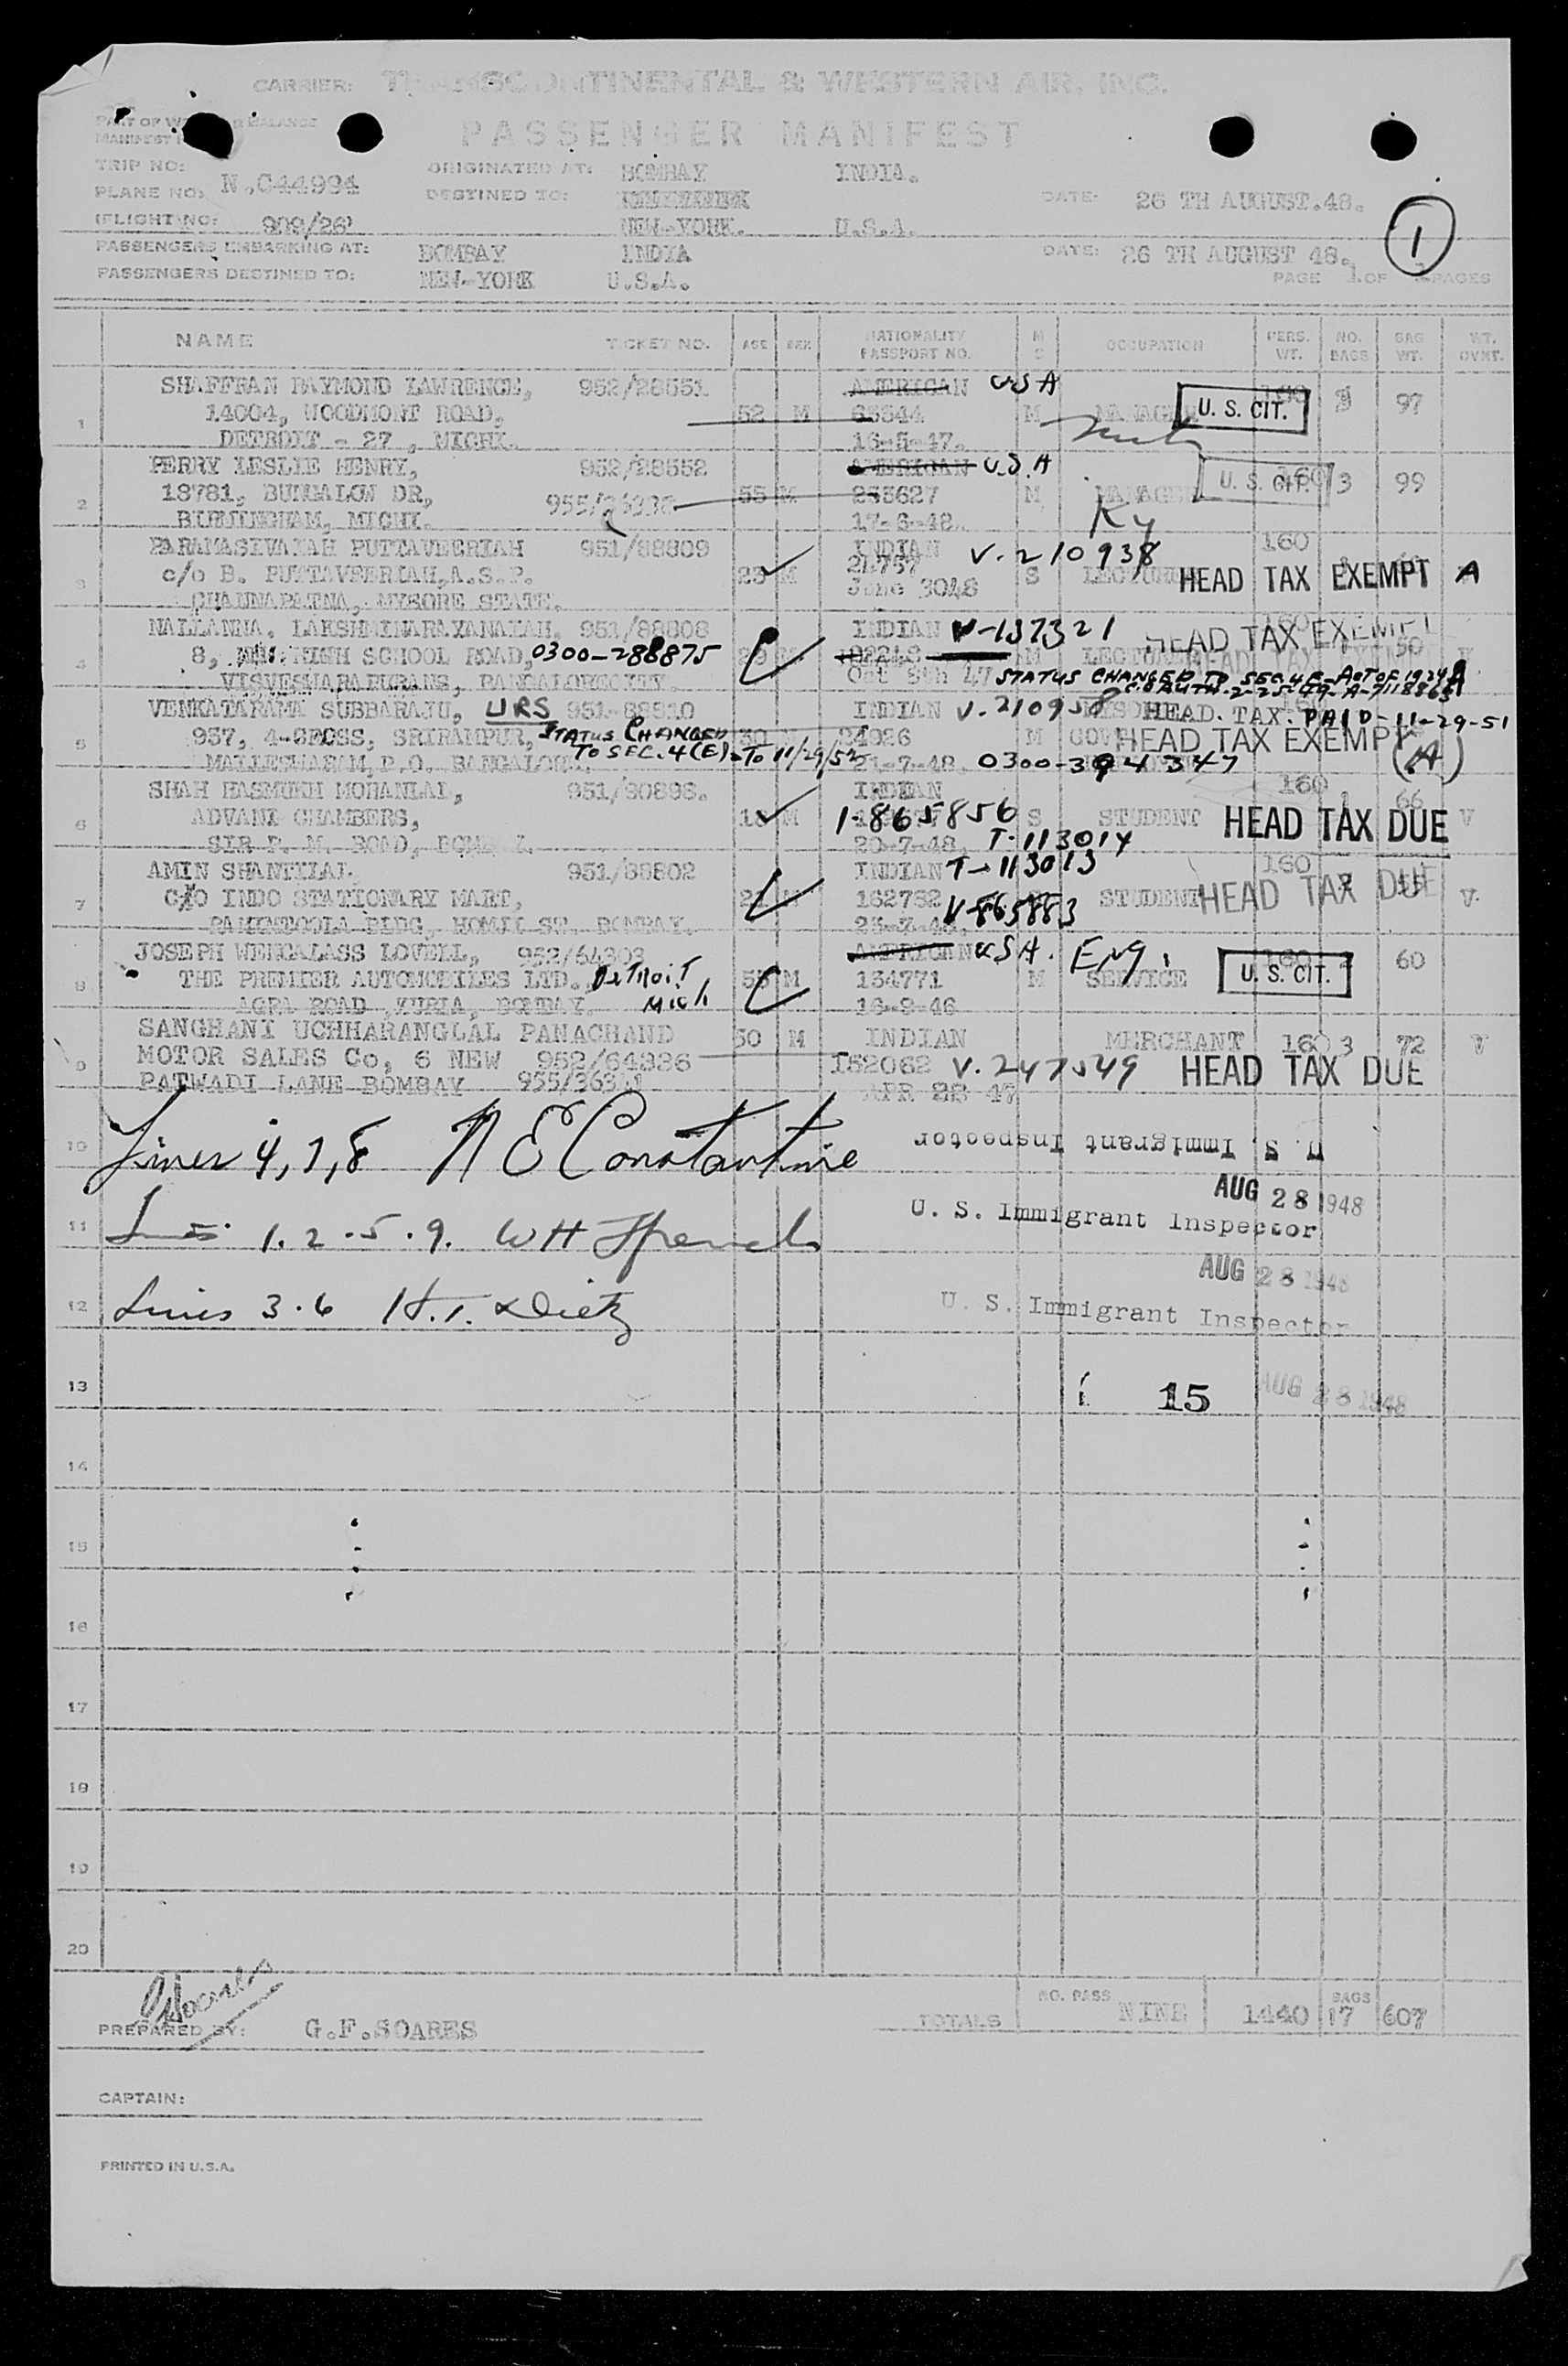 CARRIER: TRANSCONTINENTAL & WESTERN AIR, INC.
PASSENGER MANIFEST
TRIP NO:
PLANE NO: N.C44994
FLIGHT NO: 909/26
ORIGINATED AT: BOMBAY INDIA.
DESTINED TO:
NEW-YORK. U.S.A.
DATE: 26 TH AUGUST.48.
1
PASSENGERS EMBARKING AT: BOMBAY INDIA
DATE: 26 TH AUGUST 48.
PASSENGERS DESTINED TO: NEW-YORK U.S.A.
PAGE 1 OF PAGES
NAME TICKET NO. AGE SEX NATIONALITY PASSPORT NO. M S OCCUPATION PERS. WT. NO. BAGS BAG WT. WT. OVNT.
SHAFFRAN RAYMOND LAWRENCE, 952/28551 AMERICAN USA
1 14004, WOODMONT ROAD, 52 M 65544 M MANAGER U. S. CIT. 97
DETROIT - 27, MICHI. 16-5-47.
PERRY LESLIE HENRY, 952/28552 AMERICAN U.S.A
2 18781, BUNGALOW DR, 55 M 235627 M U. S. CIT. 160 3 99
BIRMINGHAM, MICHI. 17-6-48.
PARAMASIVAIAH PUTTAVEERIAH 951/88809 INDIAN V-210938 160
3 c/o B. PUTTAVEERIAH, A.S.P. 23 M S HEAD TAX EXEMPT A
CHANNAPATNA, MYSORE STATE.
NALLANNA. LAKSHMINARAYANAIAH. 951/88808 INDIAN V-137321 HEAD TAX EXEMPT
4 8, HIGH SCHOOL ROAD, 0300-288875 M 50
VISVESWARAPURAM, BANGALORECITY. Oct 8th 47 STATUS CHANGED TO SEC. 4E-ACT OF 1924
VENKATARAMA SUBBARAJU, URS 951-88810 INDIAN V.210958 HEAD.TAX.PAID-11-29-51
5 937, 4-CROSS, SRIRAMPUR, STATUS CHANGED 24026 M HEAD TAX EXEMPT (A)
TO SEC.4(E)-TO 11/29/52
MALLESWARAM, P.O. BANGALORE. 21-7-48. 0300-394347
SHAH HASMUKH MOHANLAL, 951/80898. INDIAN 160 66
6 ADVANI CHAMBERS, 18 M 1-865856 S STUDENT HEAD TAX DUE V
SIR P. M. ROAD, 20-7-48. T-113014
AMIN SHANTILAL 951/88802 INDIAN T-113013 160
7 C/O INDO STATIONARY MART, 21 162782 V-865883 STUDENT HEAD TAX DUE V.
BLDG, ST. BOMBAY.
JOSEPH LOVELL, 952/64303 AMERICAN USA. Eng.
8 THE PREMIER AUTOMOBILES LTD. DETROIT 55 M 134771 M SERVICE U. S. CIT. 60
AGRA ROAD, KURLA, BOMBAY. Mich 16-9-46
SANGHANI UCHHARANGLAL PANACHAND 50 M INDIAN MERCHANT 160 3 72 V
9 MOTOR SALES Co, 6 NEW 952/64336 152062 V.247549 HEAD TAX DUE
PATWADI LANE BOMBAY APR 28 47
10 Lines 4, 7, 8 N E Constantine U. S. Immigrant Inspector
AUG 28 1948
11 1.2.5.9. U. S. Immigrant Inspector
AUG 28 1948
12 Lines 3.6 U. S. Immigrant Inspector
13 15 AUG 28 1948
14
15
16
17
18
19
20
PREPARED BY: G.F.SOARES
TOTALS NO. PASS. NINE 1440 BAGS 17 607
CAPTAIN:
PRINTED IN U.S.A.